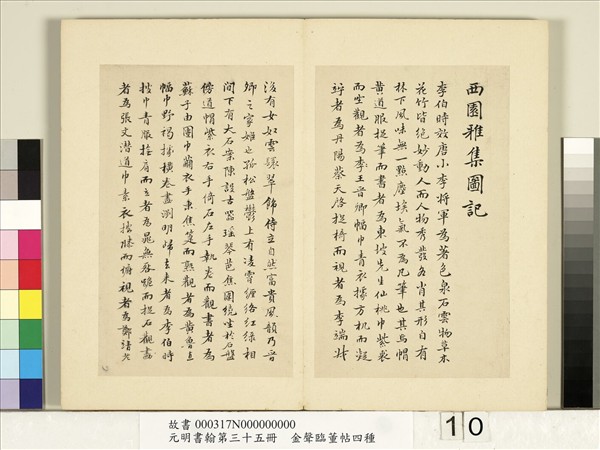 西園雅集圖記
李伯時效唐小李將軍為著色泉石雲物草木
花竹皆絕妙動人而人物秀發各肖其形自有
林下風味無一點塵埃氣不為凡筆也其烏帽
黃道服捉筆而書者為東坡先生仙桃巾紫裘
而坐觀者為李王晉卿幅巾青衣據方机而凝
竚者為丹陽蔡天啓捉椅而視者為李端叔
後有女奴雲鬟翠飾侍立自然富貴風韻乃晉
卿之家姬也孤松盤鬱上有凌霄纏絡紅綠相
間下有大石案陳設古器瑤琴芭焦圍繞坐於石盤
傍道帽紫衣右手倚石左手執卷而觀書者為
蘇子由團巾繭衣手秉焦箑而觀者為黃魯直
幅巾野褐據橫卷畫淵明歸去來者為李伯時
披巾青服撫肩而立者為晁無咎跪而捉石觀畫
者為張文潛道巾素衣按膝而俯視者為鄭靖老
故書 000317N000000000
元明書翰第三十五冊 金聲臨董帖四種
10